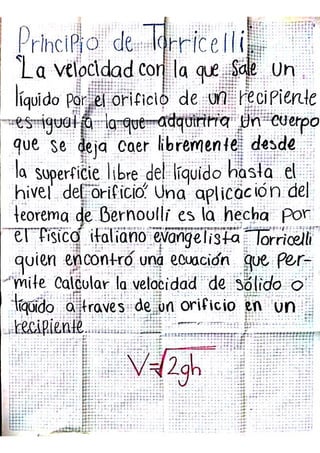 Principio de Torricelli
"La velocidad con la que sale un
líquido por el orificio de un recipiente
es igual a la que adquiriria un cuerpo
que se deja caer libremente desde
la superficie libre del líquido hasta el
nivel del orificio". Una aplicación del
teorema de Bernoulli es la hecha por
el físico italiano evangelista Torricelli
quien encontró una ecuación que per-
mite calcular la velocidad de sólido o
líquido a traves de un orificio en un
recipiente.
V=√2gh